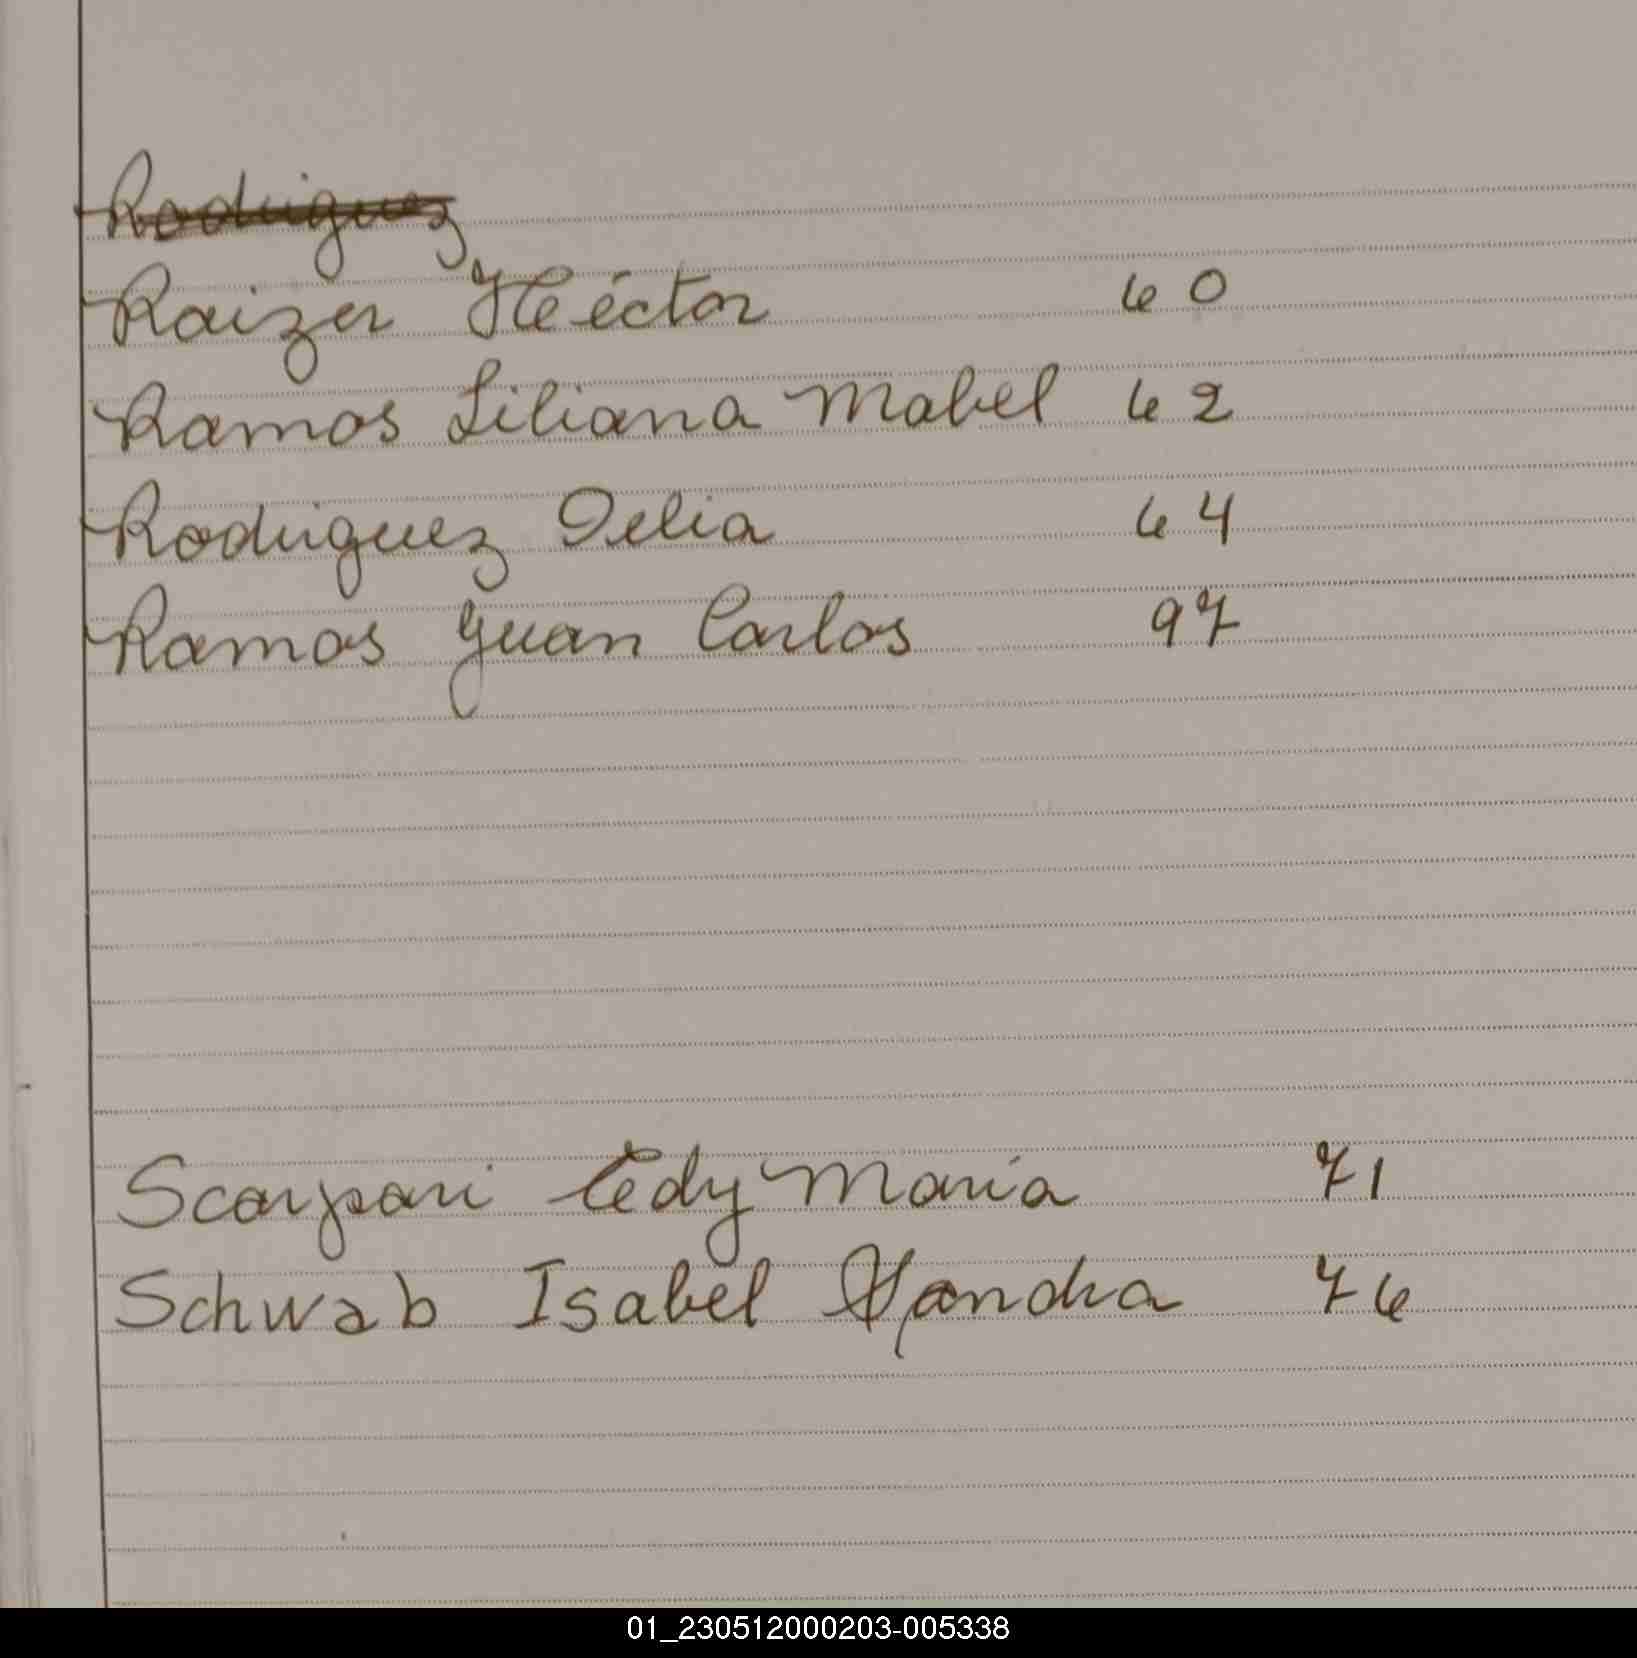 Rodriguez
Raizer Héctor 60
Ramos Liliana Mabel 62
Rodriguez Delia 64
Ramos Juan Carlos 97
Scarpari Ledy María 71
Schwab Isabel Sandra 76
01_230512000203-005338